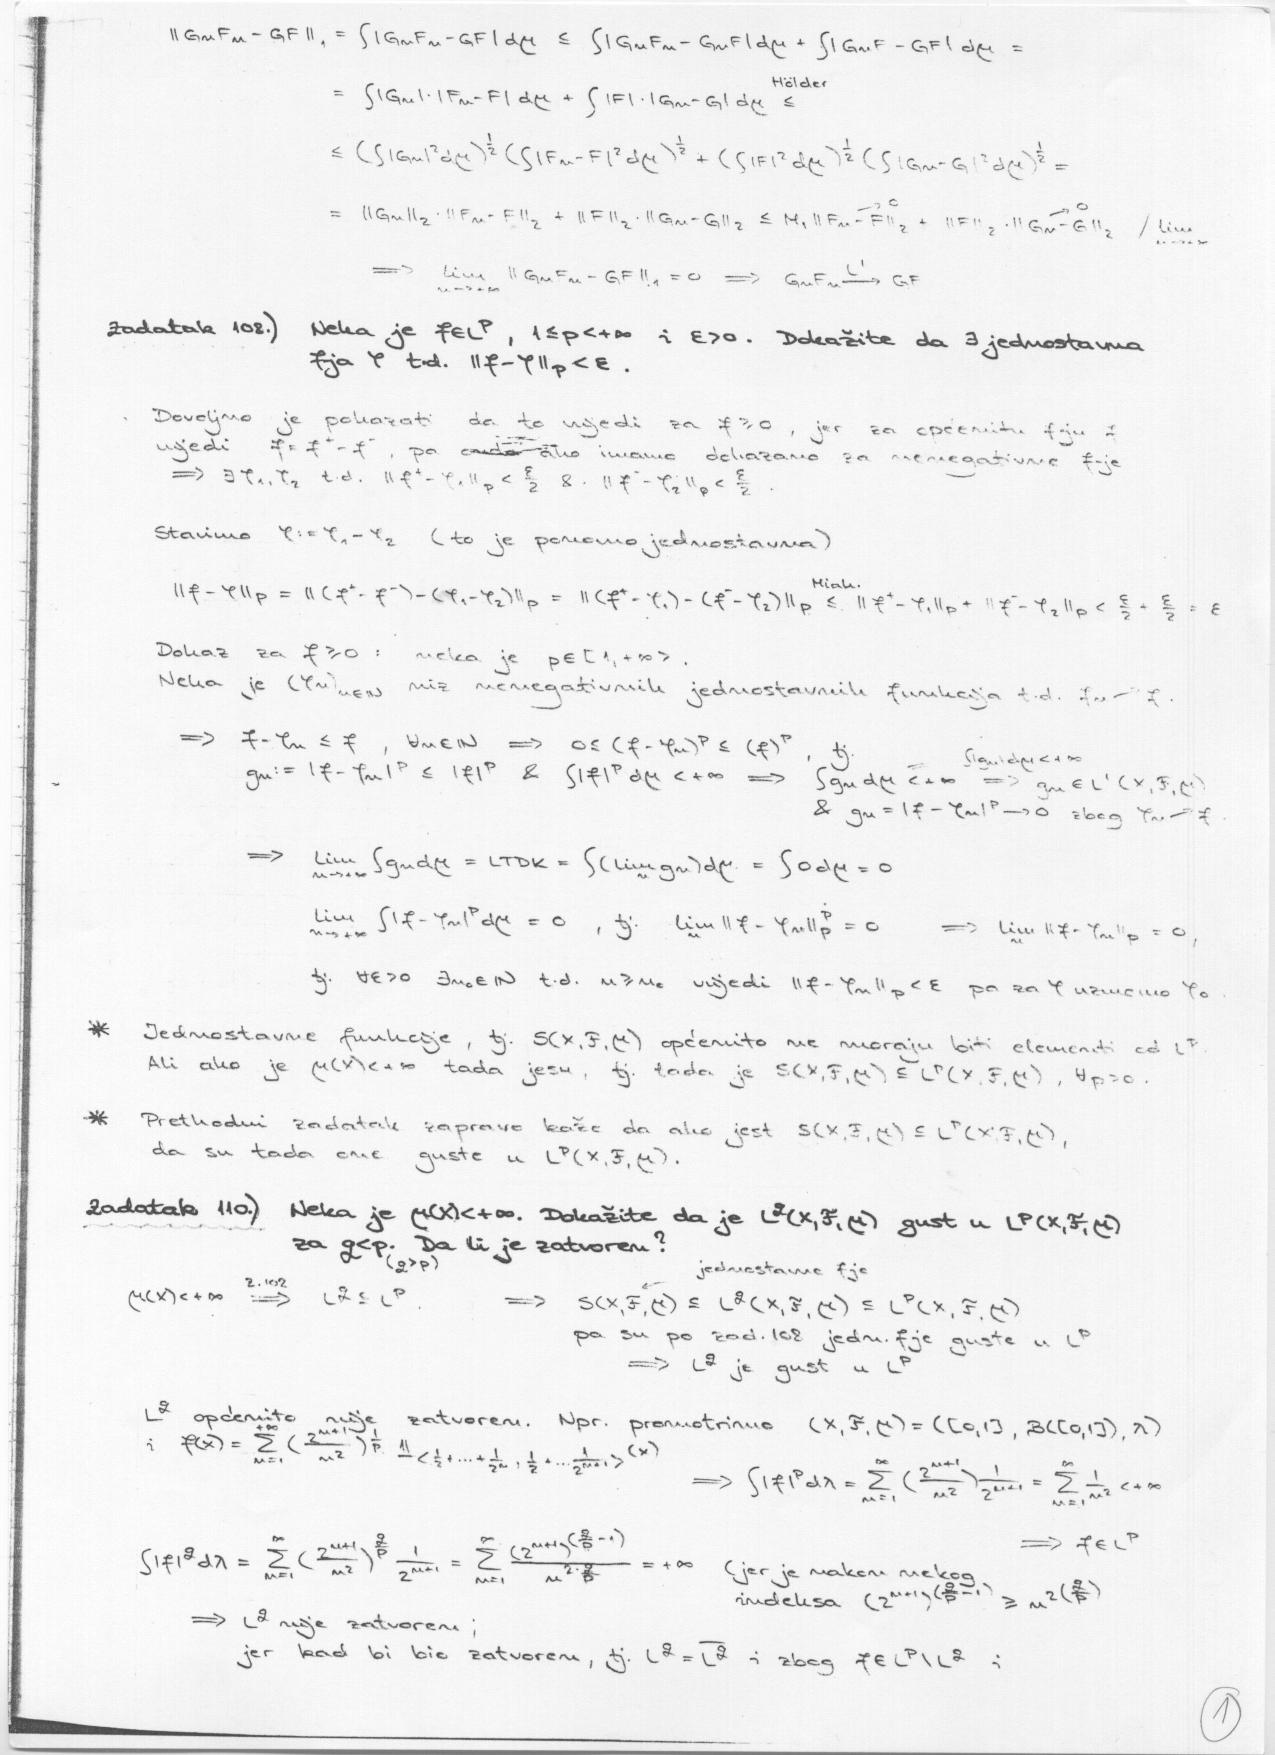 ||GnFn - GF||₁ = ∫|GnFn - GF|dμ ≤ ∫|GnFn - GnF|dμ + ∫|GnF - GF|dμ =
= ∫|Gn|·|Fn - F|dμ + ∫|F|·|Gn - G|dμ ≤ Hölder
≤ (∫|Gn|²dμ)^{1/2} (∫|Fn - F|²dμ)^{1/2} + (∫|F|²dμ)^{1/2} (∫|Gn - G|²dμ)^{1/2} =
= ||Gn||₂·||Fn - F||₂ + ||F||₂·||Gn - G||₂ ≤ M₁||Fn - F||₂ →0 + ||F||₂·||Gn - G||₂ →0 / lim n→+∞
⟹ lim n→+∞ ||GnFn - GF||₁ = 0 ⟹ GnFn —L¹→ GF
Zadatak 108.) Neka je f∈L^p, 1≤p<+∞ i ε>0. Dokažite da ∃ jednostavna
fja φ t.d. ||f-φ||p < ε.
Dovoljno je pokazati da to vrijedi za f≥0, jer za općenitu fju f
vrijedi f = f⁺ - f⁻, pa ako imamo dokazano za nenegativne f-je
⟹ ∃φ₁,φ₂ t.d. ||f⁺-φ₁||p < ε/2 & ||f⁻-φ₂||p < ε/2.
Stavimo φ := φ₁ - φ₂ (to je ponovno jednostavna)
||f-φ||p = ||(f⁺-f⁻)-(φ₁-φ₂)||p = ||(f⁺-φ₁)-(f⁻-φ₂)||p ≤ Mink. ||f⁺-φ₁||p + ||f⁻-φ₂||p < ε/2 + ε/2 = ε
Dokaz za f≥0: neka je p∈[1,+∞>.
Neka je (φn)n∈N niz nenegativnih jednostavnih funkcija t.d. fn ↗ f.
⟹ f-φn ≤ f, ∀n∈N ⟹ 0≤(f-φn)^p ≤ (f)^p, tj.
gn := |f-φn|^p ≤ |f|^p & ∫|f|^p dμ < +∞ ⟹ ∫gn dμ < +∞ ⟹ ∫|gn|dμ<+∞ gn∈L¹(X,F,μ)
& gn = |f-φn|^p → 0 zbog φn ↗ f.
⟹ lim n→+∞ ∫gn dμ = LTDK = ∫(lim n gn)dμ = ∫0dμ = 0
lim n→+∞ ∫|f-φn|^p dμ = 0, tj. lim n ||f-φn||p^p = 0 ⟹ lim n ||f-φn||p = 0,
tj. ∀ε>0 ∃n₀∈N t.d. n≥n₀ vrijedi ||f-φn||p < ε pa za φ uzmemo φ₀.
* Jednostavne funkcije, tj. S(X,F,μ) općenito ne moraju biti elementi od L^p.
Ali ako je μ(X)<+∞ tada jesu, tj. tada je S(X,F,μ) ⊆ L^p(X,F,μ), ∀p>0.
* Prethodni zadatak zapravo kaže da ako jest S(X,F,μ) ⊆ L^p(X,F,μ),
da su tada one guste u L^p(X,F,μ).
Zadatak 110.) Neka je μ(X)<+∞. Dokažite da je L^q(X,F,μ) gust u L^p(X,F,μ)
za q<p. Da li je zatvoren?
(q>p)
jednostavne fje
μ(X)<+∞ ⟹ Z.102 L^q ⊆ L^p. ⟹ S(X,F,μ) ⊆ L^q(X,F,μ) ⊆ L^p(X,F,μ)
pa su po zad.108 jedn. fje guste u L^p
⟹ L^q je gust u L^p
L^q općenito nije zatvoren. Npr. promotrimo (X,F,μ) = ([0,1], B([0,1]), λ)
i f(x) = Σ_{n=1}^{+∞} (2^{n+1}/n²)^{1/p} 1_{<1/2+...+1/2^n, 1/2+...1/2^{n+1}>}(x)
⟹ ∫|f|^p dλ = Σ_{n=1}^{∞} (2^{n+1}/n²) 1/2^{n+1} = Σ_{n=1}^{∞} 1/n² < +∞
⟹ f∈L^p
∫|f|^q dλ = Σ_{n=1}^{∞} (2^{n+1}/n²)^{q/p} 1/2^{n+1} = Σ_{n=1}^{∞} (2^{n+1})^{(q/p-1)}/n^{2·q/p} = +∞ (jer je nakon nekog
indeksa (2^{n+1})^{(q/p-1)} ≥ n^{2(q/p)}
⟹ L^q nije zatvoren;
jer kad bi bio zatvoren, tj. L^q = \overline{L^q} i zbog f∈L^p\L^q i
1